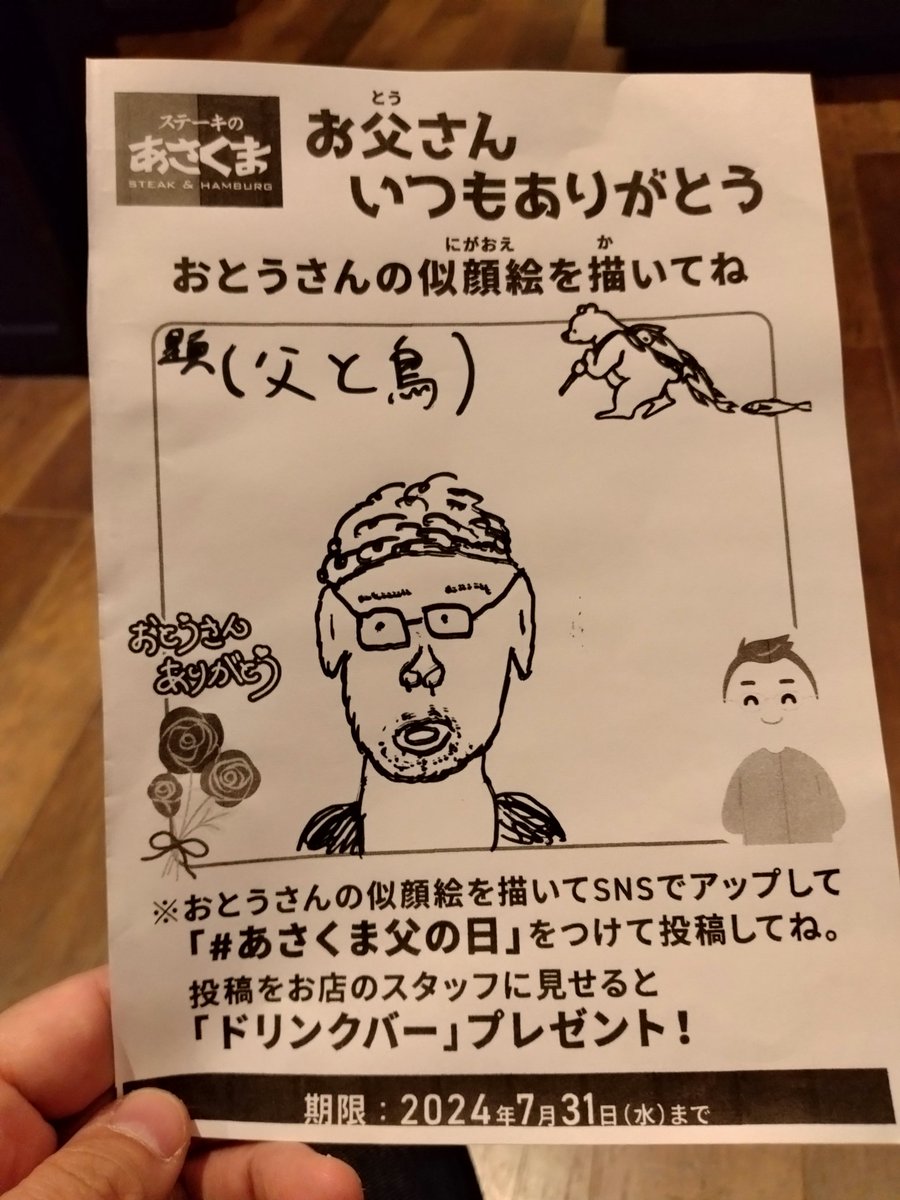 ステーキの
あさくま
STEAK & HAMBURG
とう
お父さん
いつもありがとう
にがおえ か
おとうさんの似顔絵を描いてね
題(父と鳥)
おとうさん
ありがとう
※おとうさんの似顔絵を描いてSNSでアップして
「#あさくま父の日」をつけて投稿してね。
投稿をお店のスタッフに見せると
「ドリンクバー」プレゼント!
期限:2024年7月31日(水)まで